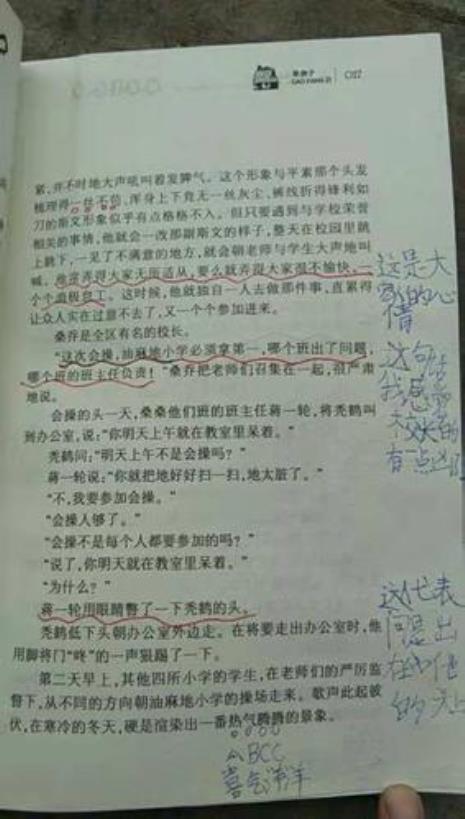 草房子
CAO FANG ZI
紧,并不时地大声吼叫着发脾气。这个形象与平素那个头发
梳理得一丝不苟、浑身上下竟无一丝灰尘、裤线折得锋利如
刀的斯文形象似乎有点格格不入。但只要遇到与学校荣誉
相关的事情,他就会一改那副斯文的样子,整天在校园里跳
上跳下,一见了不满意的地方,就会朝老师与学生大声地叫
喊。他常弄得大家无所适从,要么就弄得大家很不愉快,一
个个消极怠工。这时候,他就独自一人去做那件事,直累得
让众人实在过意不去了,又一个个参加进来。
桑乔是全区有名的校长。
“这次会操,油麻地小学必须拿第一,哪个班出了问题,
哪个班的班主任负责!”桑乔把老师们召集在一起,很严肃
地说。
会操的头一天,桑桑他们班的班主任蒋一轮,将秃鹤叫
到办公室,说:“你明天上午就在教室里呆着。”
秃鹤问:“明天上午不是会操吗?”
蒋一轮说:“你就把地好好扫一扫,地太脏了。”
“不,我要参加会操。”
“会操人够了。”
“会操不是每个人都要参加的吗?”
“说了,你明天就在教室里呆着。”
“为什么?”
蒋一轮用眼睛瞥了一下秃鹤的头。
秃鹤低下头朝办公室外边走。在将要走出办公室时,他
用脚将门“咚”的一声狠踢了一下。
第二天早上,其他四所小学的学生,在老师们的严厉监
督下,从不同的方向朝油麻地小学的操场走来。歌声此起彼
伏,在寒冷的冬天,硬是渲染出一番热气腾腾的景象。
这是大
家的心
情
这句话
我感觉
有一点凶
这代表
问题出
在他
的头上
ABCC
喜气洋洋